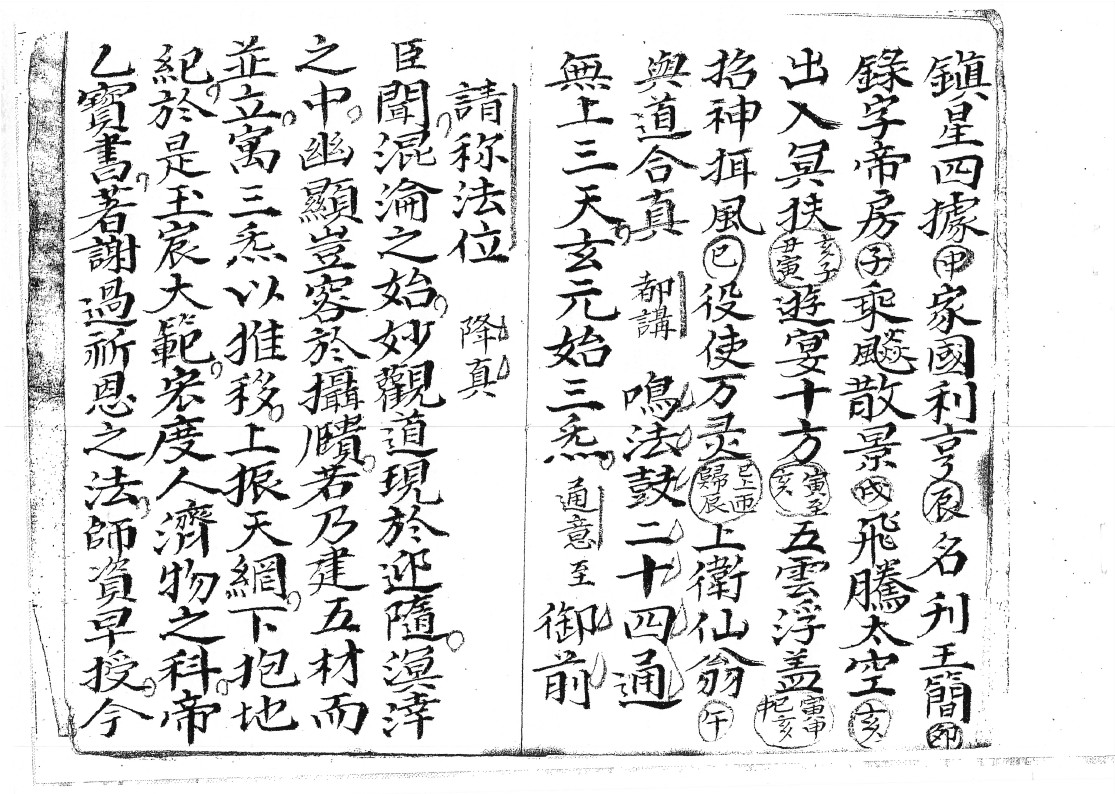 鎮星四據申家國利亨辰名刋玉簡卯
錄字帝房子乘飈散景戌飛騰太空亥
出入冥扶亥子丑寅遊宴十方寅至亥五雲浮盖寅申巳亥
招神揖風巳役使万灵巳上西歸辰上衛仙翁午
與道合真 都講 鳴法鼓二十四通
無上三天玄元始三炁 通意至 御前
請称法位 降真
臣聞混淪之始妙觀道現於迎隨溟涬
之中幽顯豈容於攝賾若乃建五材而
並立寓三炁以推移上振天網下抱地
紀於是玉宸大範宏度人濟物之科帝
乙寶書著謝過祈恩之法師資早授今